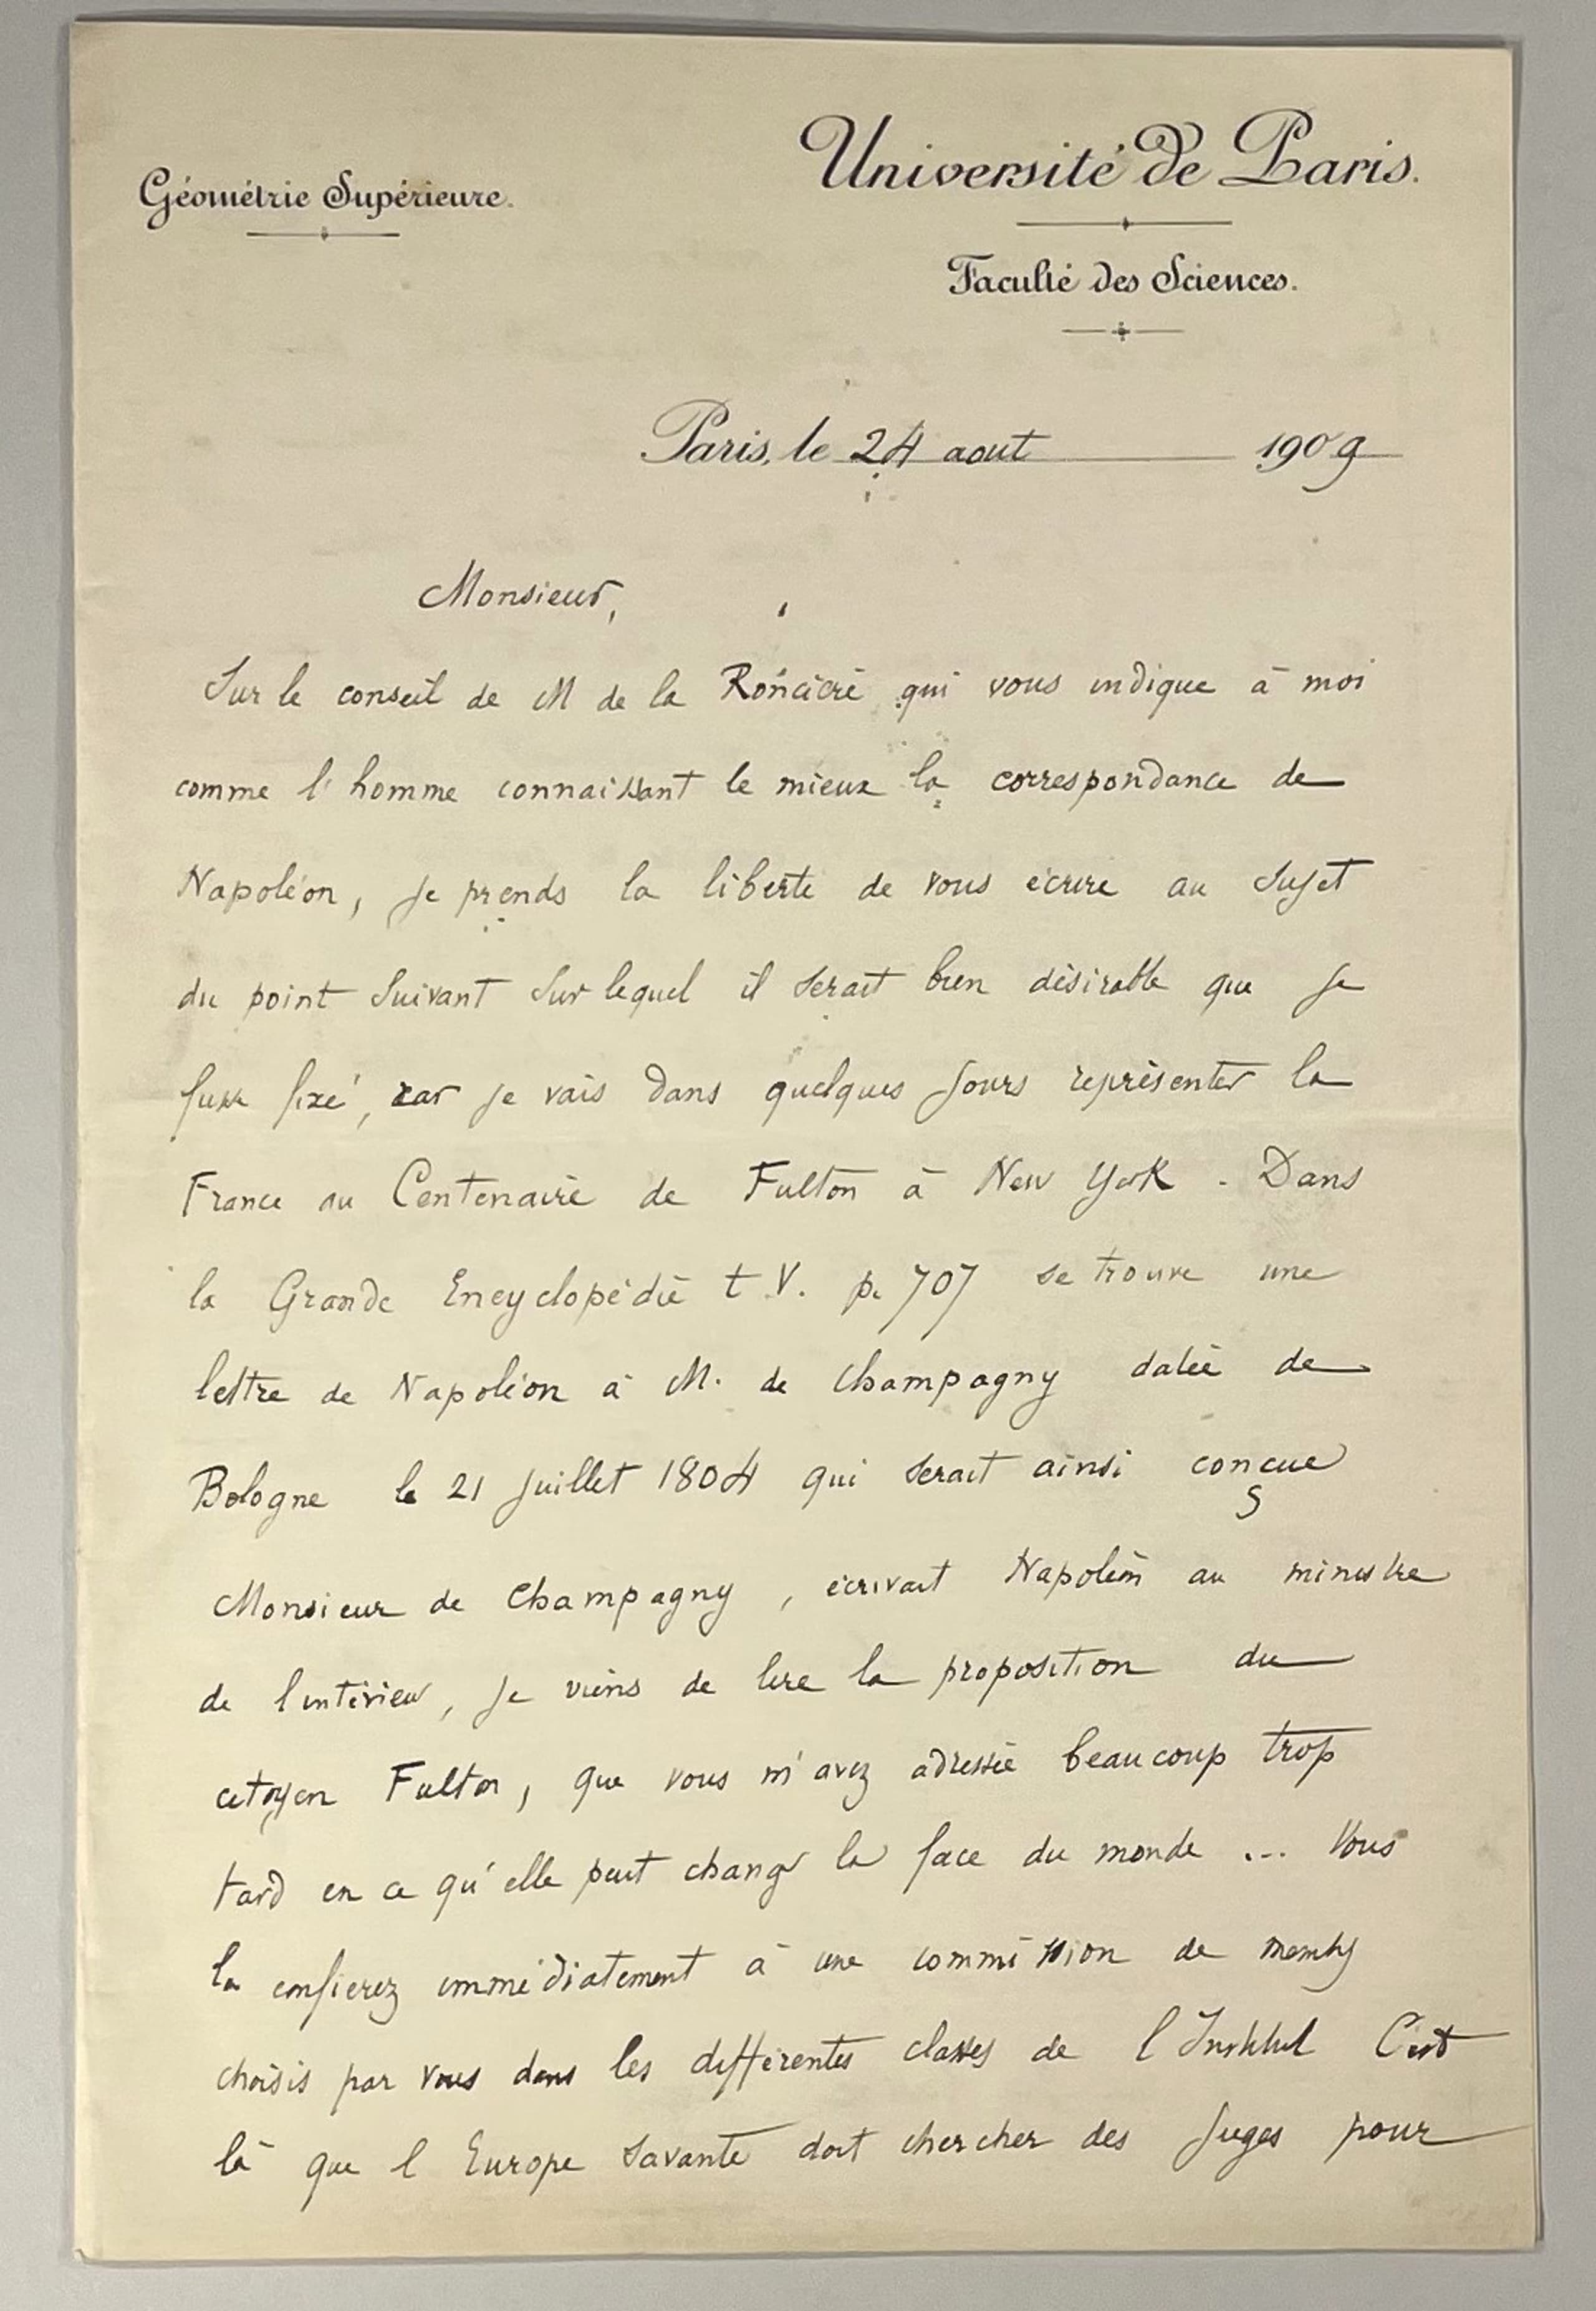 Géométrie Supérieure.
Université de Paris.
Faculté des Sciences.
Paris, le 24 aout 1909
Monsieur,
Sur le conseil de M de la Roncière qui vous indique à moi
comme l'homme connaissant le mieux la correspondance de
Napoléon, je prends la liberté de vous écrire au sujet
du point suivant sur lequel il serait bien désirable que je
fusse fixé, car je vais dans quelques jours représenter la
France au Centenaire de Fulton à New York. Dans
la Grande Encyclopédie t. V. p. 707 se trouve une
lettre de Napoléon à M. de Champagny datée de
Bologne le 21 juillet 1804 qui serait ainsi conçue
Monsieur de Champagny, écrivait Napoléon au ministre
de l'intérieur, je viens de lire la proposition du
citoyen Fulton, que vous m'avez adressée beaucoup trop
tard en ce qu'elle peut changer la face du monde ... Vous
la confierez immédiatement à une commission de membres
choisis par vous dans les différentes classes de l'Institut C'est
là que l'Europe savante doit chercher des juges pour